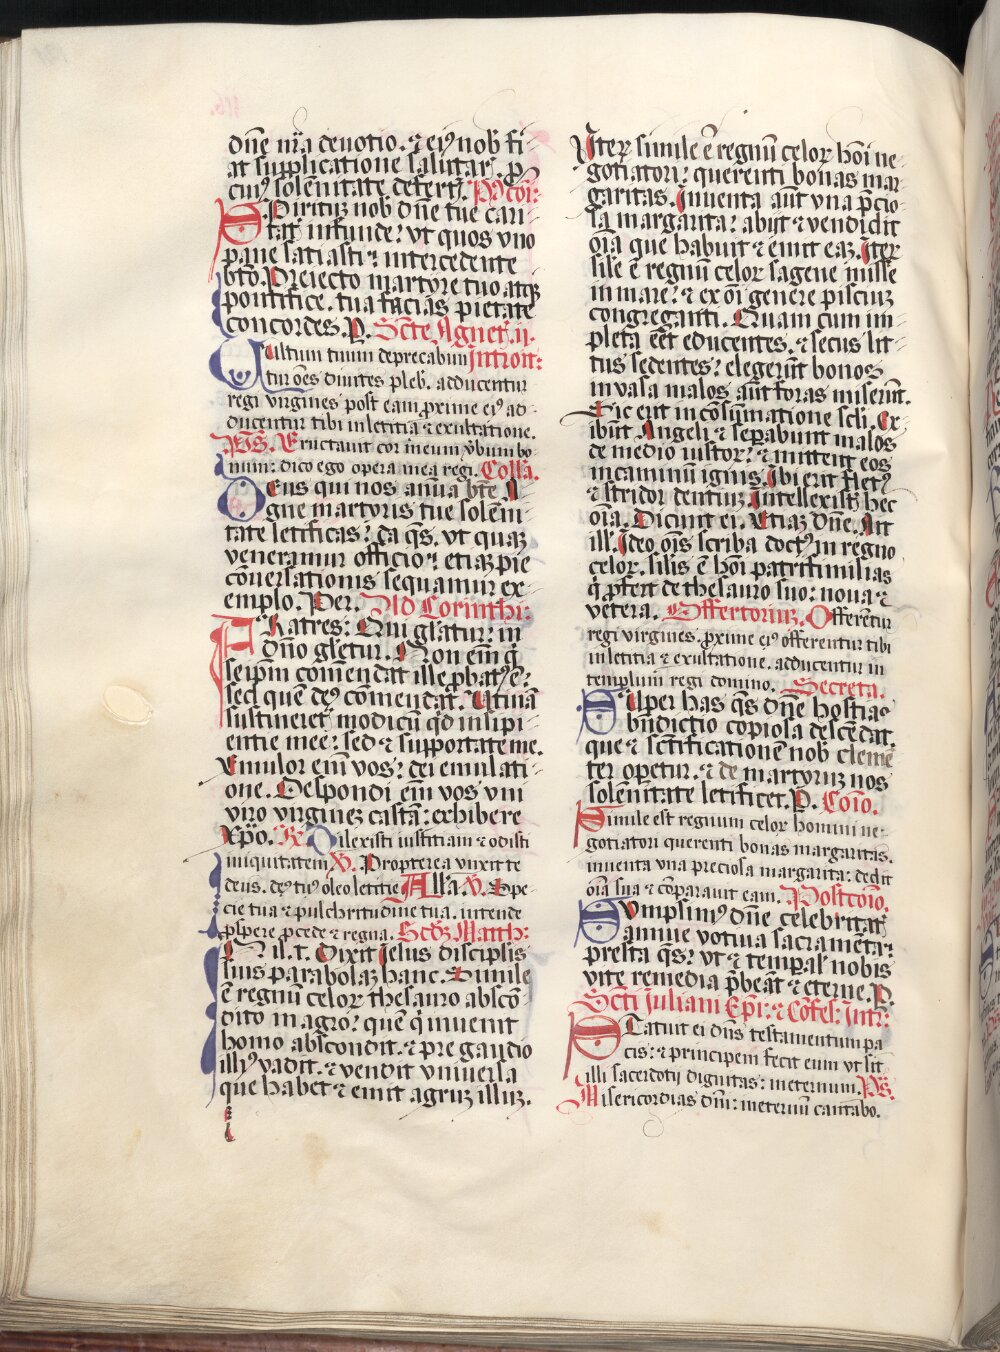 dn̄e nr̄a deuotio. ⁊ eiꝰ nob̄ fi-
at supplicatione salutar̄. p̱
cuiꝰ solēnitate defertᷣ. Pꝰ cōi:
SPiritūꝫ nob̄ dn̄e tue cari-
tatꝭ infunde: vt quos vno
pane satiasti: intercedente
btō. Proiecto martyre tuo atqꝫ
pontifice. tua facias pietate
concordes. P. Sctē Agnetꝭ .ij.
Vultum tuum deprecabun Introit:
tur oēs diuites pleb̄. adducentur
regi virgines post eam proxime eiꝰ ad-
ducentur tibi in letitia ⁊ exultatione.
PS. Eructauit cor meum v̄bum bo-
num: dico ego opera mea regi. Collā.
DEus qui nos annua btē A-
gne martyris tue solēni-
tate letificas: da qs̄. vt quaꝫ
veneramur officio: etiaꝫ pie
cōuersationis sequamur ex-
emplo. Per. Ad Corinthi:
FRatres: Qui gl̄iatur: in
dn̄o gl̄ietur. Non eni̅ q̇
seip̄m comēdat ille p̱batꝰ ē:
sed quē deꝰ cōmendat. Utinā
sustineretꝭ modicū qd̄ insipi-
entie mee: sed ⁊ supportate me.
Emulor eni̅ vos: dei emulati-
one. Despondi eni̅ vos vni
viro virgineꝫ castā: exhibere
xp̄o. R̷. Dilexisti iustitiam ⁊ odisti
iniquitatem. V̷. Propterea vnxit te
deus. deꝰ tuꝰ oleo letitie. Allā. V̷. Spe-
cie tua ⁊ pulchritudine tua. intende
prospere procede ⁊ regna. Scd̄ꝫ Matth:
IN il. t. Dixit Iesus discipl̄is
suis parabolaꝫ hanc. Simile
ē regnū celoꝝ thesauro abscō-
dito in agro: quē q̇ inuenit
homo abscondit. ⁊ pre gaudio
illiꝰ vadit. ⁊ vendit vniuersa
que habet ⁊ emit agruꝫ illuꝫ.
Iteꝝ simile ē regnū celoꝝ hōi ne-
gotiatori: querenti bonas mar-
garitas. Inuenta aūt vna p̄cio-
sa margarita: abijt ⁊ vendidit
oīa que habuit ⁊ emit eaꝫ. Iteꝝ
sil̄e ē regnū celoꝝ sagene misse
in mare: ⁊ ex oī genere pisciuꝫ
congreganti. Quam cum im-
pleta eēt educentes. ⁊ secus lit-
tus sedentes: elegerūt bonos
in vasa malos aūt foras miserūt.
Sic erit in cōsumatione scl̄i. Ex-
ibūt Angeli ⁊ sep̱abunt malos
de medio iustoꝝ: ⁊ mittent eos
in caminum ignis. Ibi erit fletꝰ
⁊ stridor dentiuꝫ. Intellexistꝭ hec
oīa. Dicunt ei. Etiaꝫ dn̄e. Ait
ill̄. Ideo oīs scriba doctꝰ in regno
celoꝝ. sil̄is ē hōi patrifamilias
q̇ p̱fert de thesauro suo: noua ⁊
vetera. Offertoriuꝫ. Offerētur
regi virgines. proxime eiꝰ offerentur tibi
in letitia ⁊ exultatione. adducentur in
templum regi domino. Secreta.
SUper has qs̄ dn̄e hostias
bn̄dictio copiosa descēdat.
que ⁊ sctificationē nob̄ clemē-
ter op̱etur. ⁊ de martyruꝫ nos
solēnitate letificet. P. Cōio.
Simile est regnum celoꝝ homini ne-
gotiatori querenti bonas margaritas.
inuenta vna preciosa margarita: dedit
oīa sua ⁊ cōparauit eam. Postcōio.
SUmpsimꝰ dn̄e celebritatꝭ
annue votiua sacramēta:
presta qs̄: vt ⁊ tempal̄ nobis
vite remedia p̄beāt ⁊ eterne. P.
Scti Iuliani Ep̄i: ⁊ Cōfes: Intr:
STatuit ei dn̄s testamentum pa-
cis: ⁊ principem fecit eum vt sit
illi sacerdotij dignitas: in eternum. PS.
Misericordias dn̄i: in eternū cantabo.